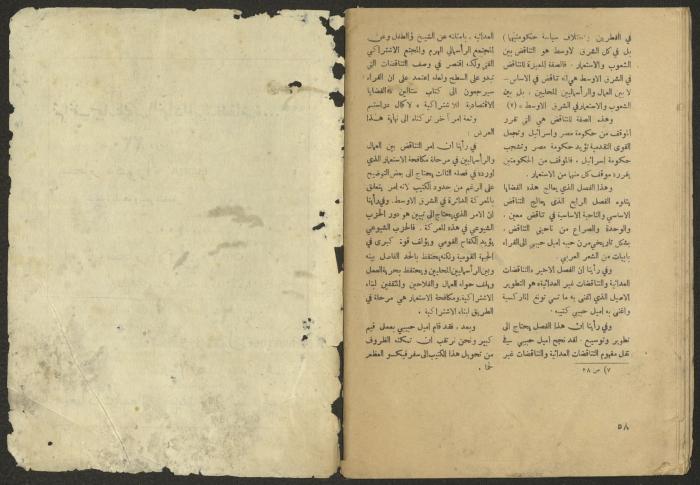 في القطرين واختلاف سياسة حكومتيهما)
بل في كل الشرق الاوسط هو التناقض بين
الشعوب والاستعمار . فالصفة المميزة للتناقض
في الشرق الاوسط هي انه تناقض في الاساس...
لا بين العمال والرأسماليين المحليين ، بل بين
الشعوب والاستعمار في الشرق الاوسط » (٧)
وهذه الصفة للتناقض هي التي تقرر
الموقف من حكومة مصر واسرائيل وتجعل
القوى التقدمية تؤيد حكومة مصر وتشجب
حكومة اسرائيل . فالموقف من الحكومتين
يقرره موقف كل منها من الاستعمار .
وهذا الفصل الذي يعالج هذه القضايا
يتلوه الفصل الرابع الذي يعالج التناقض
الاساسي والناحية الاساسية في تناقض معين ،
والوحدة والصراع من ناحيتي التناقض ،
بشكل تاريخي مرن حببه اميل حبيبي الى القراء
بابيات من الشعر العربي .
وفي رأينا ان الفصل الاخير «التناقضات
العدائية والتناقضات غير العدائية» هو التطوير
الاصيل الذي اغنى به ماتسي تونغ الماركسية
واغنى به اميل حبيبي كتيبه .
وفي رأينا ان هذا الفصل يحتاج الى
تطوير وتوسيع . لقد نجح اميل حبيبي في
نقل مفهوم التناقضات العدائية والتناقضات غير
٧) ص ٣٨
العدائية . بامثلته عن الشيخ والطفل وعن
المجتمع الرأسمالي الهرم والمجتمع الاشتراكي
الفتي ولكنه اقتصر في وصف التناقضات التي
تبدو على السطح ولعله اعتمد على ان القراء
سيرجعون الى كتاب ستالين «القضايا
الاقتصادية للاشتراكية » لاكمال دراستهم
وثمة امر آخر تركناه الى نهاية هذا
العرض :
في رأينا ان امر التناقض بين العمال
والرأسماليين في مرحلة مكافحة الاستعمار الذي
اورده في فصله الثالث يحتاج الى بعض التوضيح
على الرغم من حدود الكتيب لانه امر يتعلق
بالمعركة الدائرة في الشرق الاوسط . وفي رأينا
ان الامر الذي يحتاج الى تبيين هو دور الحزب
الشيوعي في هذه المعركة . فالحزب الشيوعي
يؤيد الكفاح القومي ويؤلف قوة كبرى في
الجبهة القومية ولكنه يحتفظ بالحد الفاصل بينه
وبين الرأسماليين المحليين ويحتفظ بحرية العمل
ويلف حوله العمال والفلاحين والمثقفين لبناء
الاشتراكية . ومكافحة الاستعمار هي مرحلة في
الطريق لبناء الاشتراكية .
وبعد . فقد قام اميل حبيبي بعمل قيم
كبير ونحن نرتقب ان تمكنه الظروف
من تحويل هذا الكتيب الى سفر فيكسو العظم
لحما .
٥٨